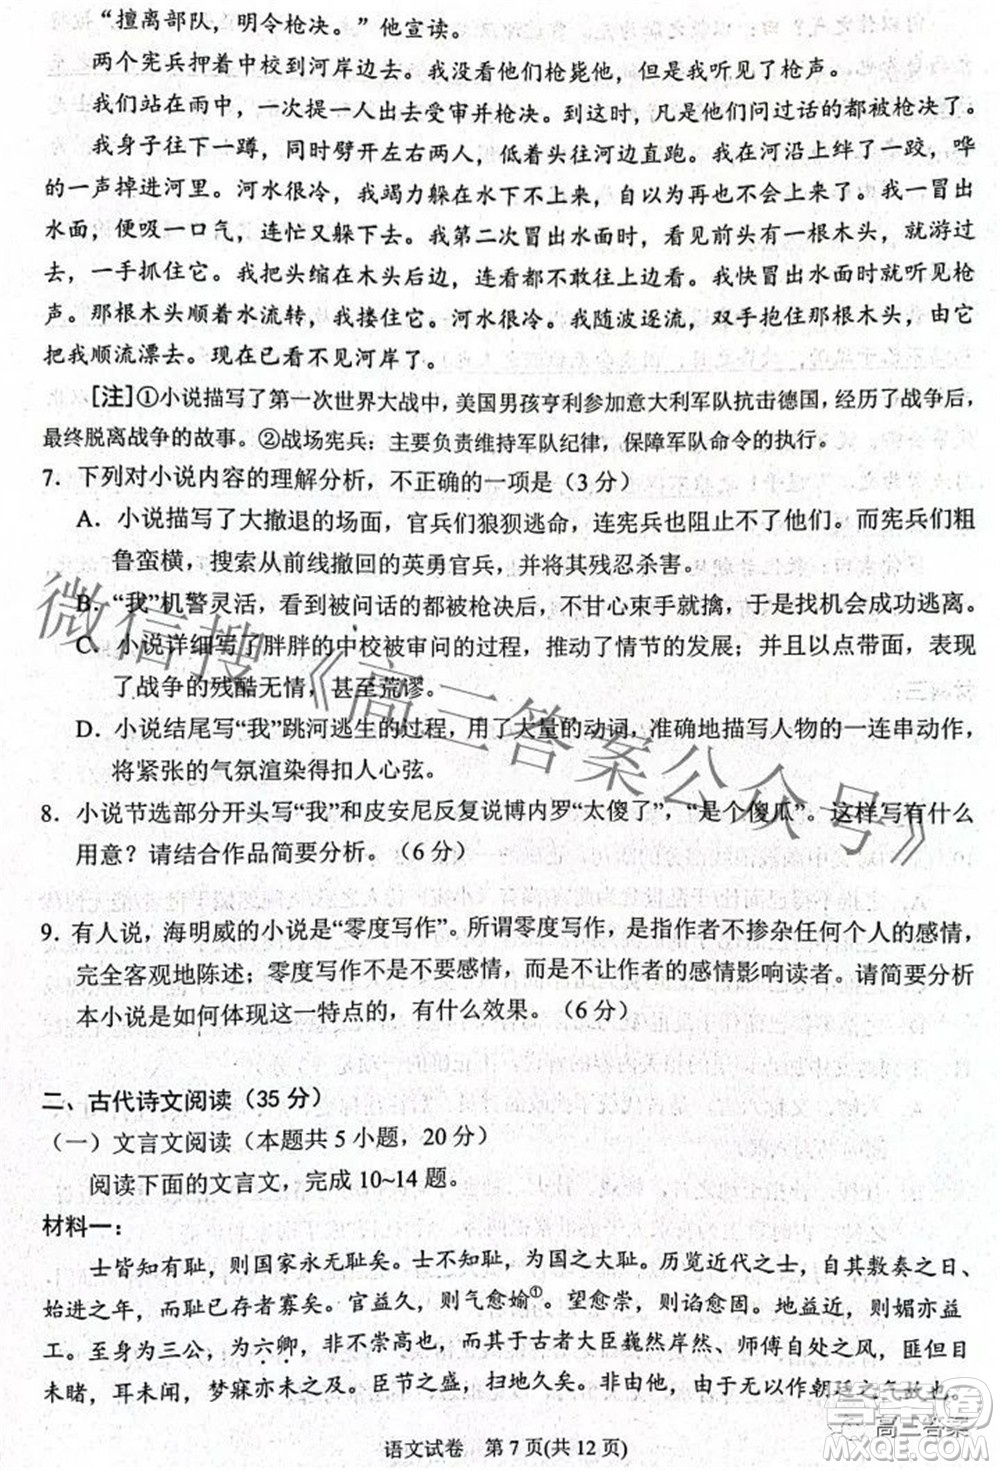 “擅离部队，明令枪决。”他宣读。
两个宪兵押着中校到河岸边去。我没看他们枪毙他，但是我听见了枪声。
我们站在雨中，一次提一人出去受审并枪决。到这时，凡是他们问过话的都被枪决了。
我身子往下一蹲，同时劈开左右两人，低着头往河边直跑。我在河沿上绊了一跤，哗
的一声掉进河里。河水很冷，我竭力躲在水下不上来，自以为再也不会上来了。我一冒出
水面，便吸一口气，连忙又躲下去。我第二次冒出水面时，看见前头有一根木头，就游过
去，一手抓住它。我把头缩在木头后边，连看都不敢往上边看。我快冒出水面时，听见枪
声。那根木头随着水流转，我搂住它。河水很冷。我随波逐流，双手抱住那根木头，由它
把我顺流漂去。现在已看不见河岸了。
[注]①小说描写了第一次世界大战中，美国男孩亨利参加意大利军队抗击德国，经历了战争后，
最终脱离战争的故事。②战场宪兵：主要负责维持军队纪律，保障军队命令的执行。
7．下列对小说内容的理解分析，不正确的一项是（3 分）
A．小说描写了大撤退的场面，官兵们狼狈逃命，连宪兵也阻止不了他们。而宪兵们粗
鲁蛮横，搜索从前线撤回的英勇官兵，并将其残忍杀害。
B．“我”机警灵活，看到被问话的都被枪决后，不甘心束手就擒，于是找机会成功逃离。
C．小说详细写了胖胖的中校被审问的过程，推动了情节的发展，并以点带面，表现
了战争的残酷无情，甚至荒谬。
D．小说结尾写“我”跳河逃生的过程，用了大量的动词，准确地描写人物的一连串动作，
将紧张的气氛渲染得扣人心弦。
8．小说节选部分开头写“我”和皮安尼反复说博内罗“太傻了”，“是个傻瓜”。这样写有什么
用意？请结合作品简要分析。（6 分）
9．有人说，海明威的小说是“零度写作”。所谓零度写作，是指作者不掺杂任何个人的感情，
完全客观地陈述；零度写作不是不要感情，而是不让作者的感情影响读者。请简要分析
本小说是如何体现这一特点的，有什么效果。（6 分）
二、古代诗文阅读（35 分）
（一）文言文阅读（本题共 5 小题，20 分）
阅读下面的文言文，完成 10~14 题。
材料一：
士皆知有耻，则国家永无耻矣。士不知耻，为国之大耻。历览近代之士，自其敷奏之日、
始进之年，而耻已存者寡矣。官益久，则气愈媮①。望愈崇，则谄愈固。地益近，则媚亦益
工。至身为三公，为六卿，非不崇高也，而其于古者大臣巍然岸然、师傅自处之风，匪但目
未睹，耳未闻，梦寐亦未之及。臣节之盛，扫地久矣。非由他，由于无以作朝廷之气故也。
语文试卷　第 7 页(共 12 页)
微信搜《高三答案公众号》
高三答案
答案圈
MXQE.COM